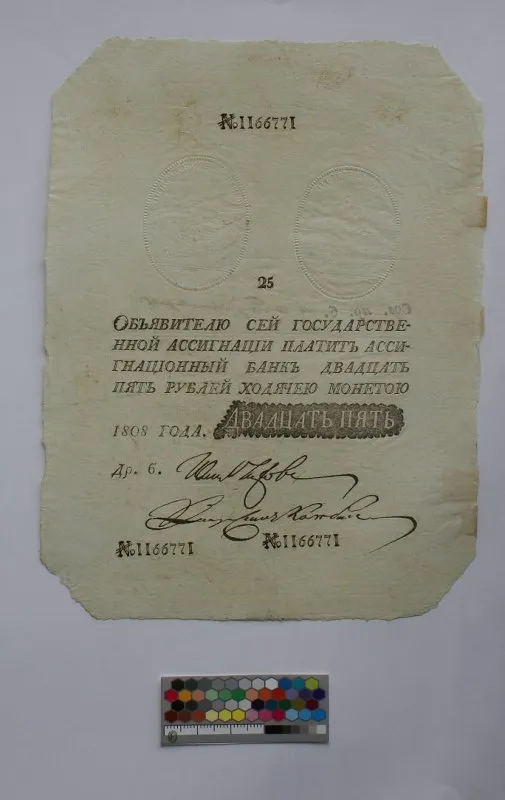 №1166771
25
ОБЪЯВИТЕЛЮ СЕЙ ГОСУДАРСТВЕ-
ННОЙ АССИГНАЦІИ ПЛАТИТЪ АССИ-
ГНАЦІОННЫЙ БАНКЪ ДВАДЦАТЬ
ПЯТЬ РУБЛЕЙ ХОДЯЧЕЮ МОНЕТОЮ
1808 ГОДА. ДВАДЦАТЬ ПЯТЬ
др. 6.
№1166771 №1166771